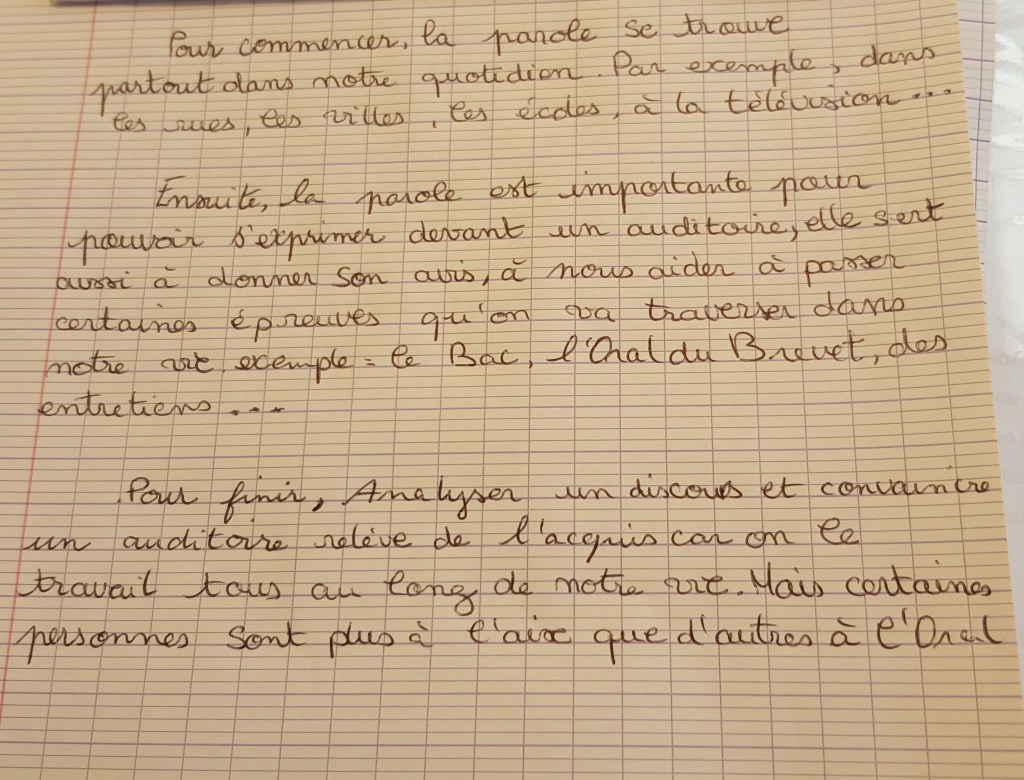 Pour commencer, la parole se trouve
partout dans notre quotidien. Par exemple, dans
les rues, les villes, les écoles, à la télévision...
Ensuite, la parole est importante pour
pouvoir s'exprimer devant un auditoire, elle sert
aussi à donner son avis, à nous aider à passer
certaines épreuves qu'on va traverser dans
notre vie exemple = le Bac, l'Oral du Brevet, des
entretiens...
Pour finir, Analyser un discours et convaintre
un auditoire relève de l'acquis car on le
travail tous au long de notre vie. Mais certaines
personnes sont plus à l'aise que d'autres à l'Oral